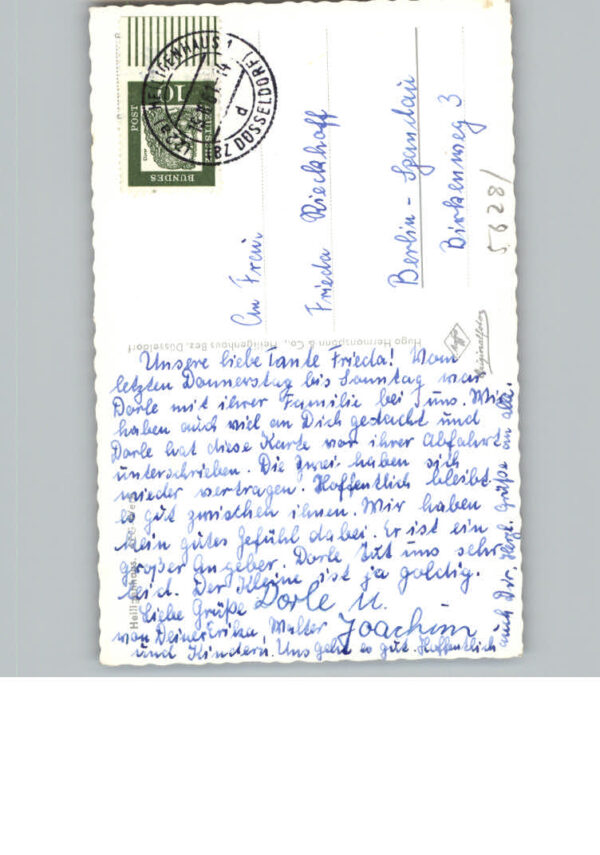 HEILIGENHAUS 1
BEZ DÜSSELDORF
(22a)
d
10
DEUTSCHE
BUNDES
POST
Dürer
An Frau
Frieda Rieckhoff
Berlin-Spandau
Birkenweg 3
5628/
Originalfoto
Hugo Hermannspann & Co., Heiligenhaus Bez. Düsseldorf
Unsere liebe Tante Frieda! Vom
letzten Donnerstag bis Sonntag war
Dorle mit ihrer Familie bei uns. Wir
haben auch viel an Dich gedacht und
Dorle hat diese Karte vor ihrer Abfahrt
unterschrieben. Die Zwei haben sich
wieder vertragen. Hoffentlich bleibt
es gut zwischen ihnen. Wir haben
kein gutes Gefühl dabei. Er ist ein
großer Angeber. Dorle tut uns sehr
leid. Der Kleine ist ja goldig.
Liebe Grüße Dorle u.
von Deiner Erika, Walter Joachim
und Kindern. Uns geht es gut. Hoffentlich
auch Dir. Herzl. Grüße an alle.